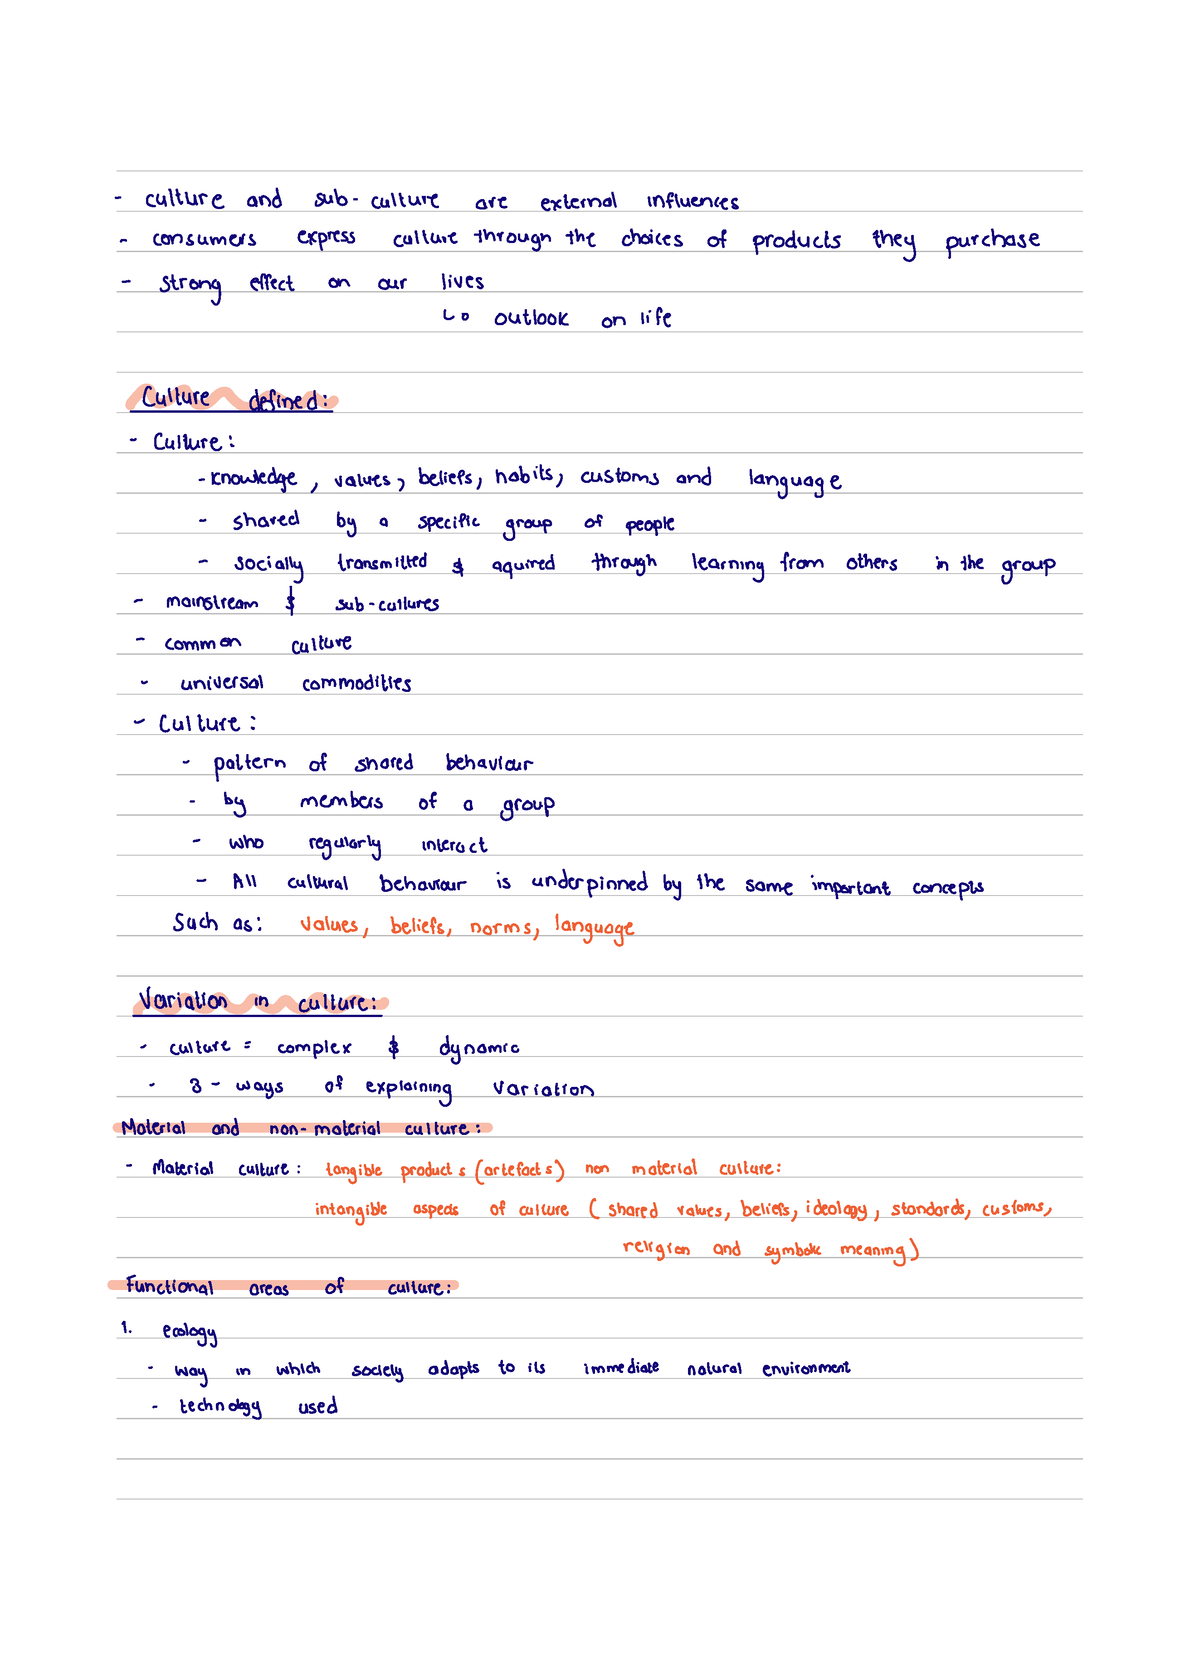 - culture and sub-culture are external influences
- consumers express culture through the choices of products they purchase
- strong effect on our lives
↳ outlook on life
Culture defined:
- Culture:
- knowledge, values, beliefs, habits, customs and language
- shared by a specific group of people
- socially transmitted & aquired through learning from others in the group
- mainstream & sub-cultures
- common culture
- universal commodities
- Culture:
- pattern of shared behaviour
- by members of a group
- who regularly interact
- All cultural behaviour is underpinned by the same important concepts
Such as: values, beliefs, norms, language
Variation in culture:
- culture = complex & dynamic
- 3 - ways of explaining variation
Material and non-material culture:
- Material culture: tangible products (artefacts) non material culture:
intangible aspects of culture (shared values, beliefs, ideology, standards, customs,
religion and symbolic meaning)
Functional areas of culture:
1. ecology
- way in which society adapts to its immediate natural environment
- technology used